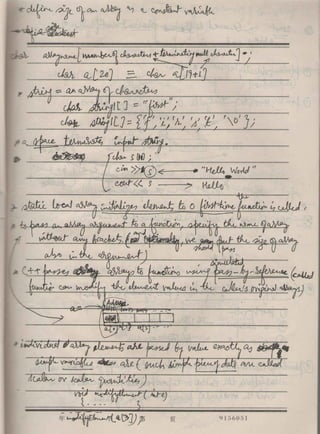 * define size of an array as a constant variable
char arrayname[number of characters + terminating null character];
char a[20] ≡ char a[19+1]
* string = an array of characters
char string1[] = "first";
char string1[] = {'f','i','r','s','t','\0'};
* a space terminates input string.
char s[10];
cin >> s; "Hello World"
cout << s → Hello
* static local array initializes elements to 0 first time the function is called.
* to pass an array argument to a function, specify the name of array
without any brackets. we put the size of array
also in the argument
* C++ passes arrays to functions using simulated pass-by-reference (called
function can modify the element values in the caller's original arrays)
a =
a[0] a[3]
* individual array elements are passed by value exactly as
simple variables are (such simple pieces of data are called
scalars or scalar quantities)
void modifyElement(int e)
{ . . . . }
modifyElement(a[3]);
9156951